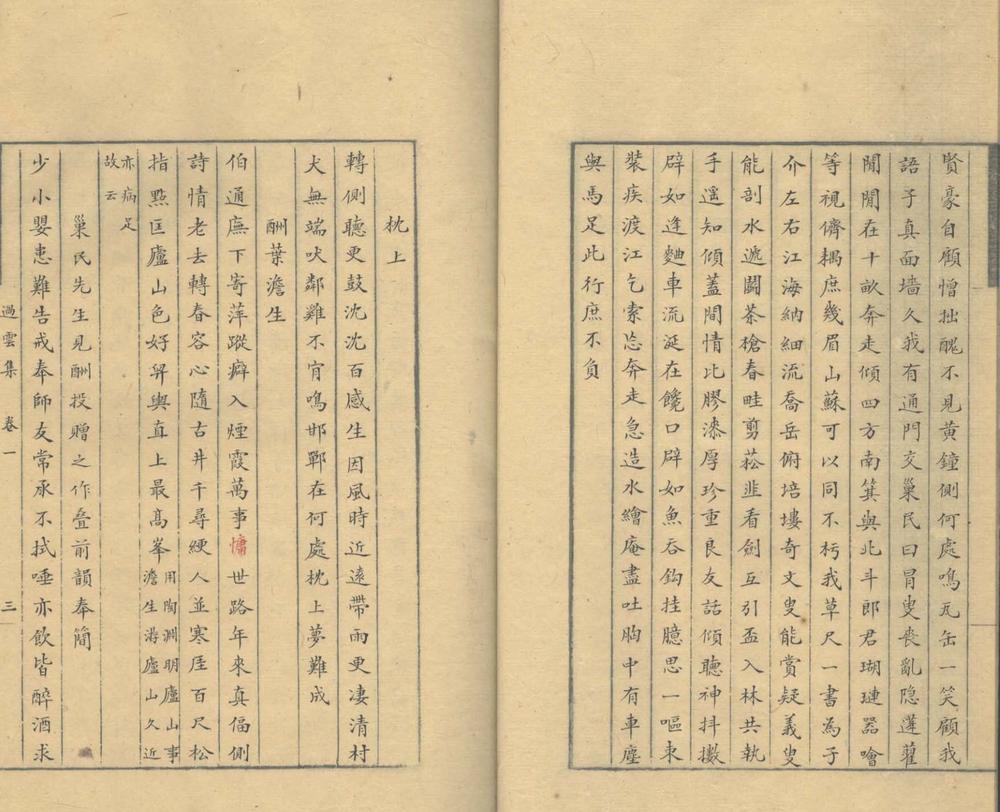 賢豪自顧憎拙醜不見黃鐘側何處鳴瓦缶一笑顧我
語子真面墻久我有通門交巢民曰冒叟喪亂隱蓬藋
聞聞在十畝奔走傾四方南箕與北斗郎君瑚璉器噲
等視儕耦庶幾眉山蘇可以同不朽我草尺一書為子
介左右江海納細流喬岳俯培塿奇文叟能賞疑義叟
能剖水遞鬭茶槍春畦剪菘韭看劍互引盃入林共執
手遥知傾蓋間情比膠漆厚珍重良友話傾聽神抖擻
辟如逢麯車流涎在饞口辟如魚吞鈎挂臆思一嘔束
裝疾渡江乞索忩奔走急造水繪庵盡吐胸中有車塵
與馬足此行庶不負
枕上
轉側聽更鼓沈沈百感生因風時近遠帶雨更凄清村
犬無端吠鄰雞不肯鳴邯鄲在何處枕上夢難成
酬葉澹生
伯通廡下寄萍蹤癖入煙霞萬事慵世路年來真偪側
詩情老去轉春容心隨古井千尋綆人並寒厓百尺松
指點匡廬山色好舁輿直上最高峯用陶淵明廬山事
澹生游廬山久近
亦病足
故云
巢民先生見酬投贈之作叠前韻奉簡
少小嬰患難告戒奉師友常承不拭唾亦飲皆醉酒求
過雲集 卷一 三